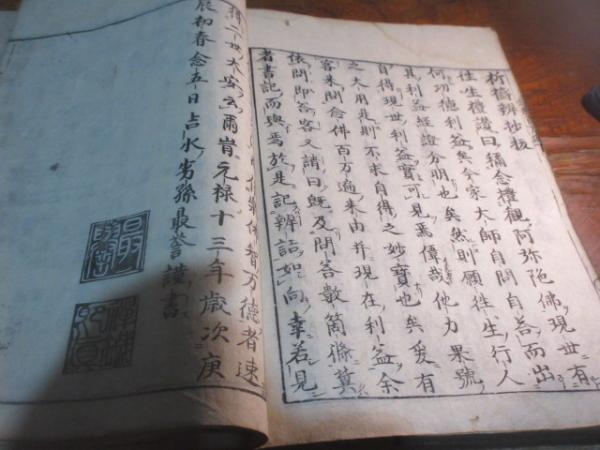 祈禱辨抄跋
往生禮讃曰稱念禮觀阿弥陀佛現世有
何功德利益矣今家大師自問自荅而出
其利益經證分明也矣然則願往生行人
自得現世利益實可見焉偉哉他力果號
之大用是則不求自得之妙寳也矣爰有
客来問念佛百万遍来由并現在利益余
依問即荅客又請曰既及問荅數箇條冀
者書記而與焉於是記辨詰如向幸若見
佛智万德者速
得二世大安云爾旹元禄十三年歳次庚
辰初春念五日占水劣孫最誉謹書
最譽